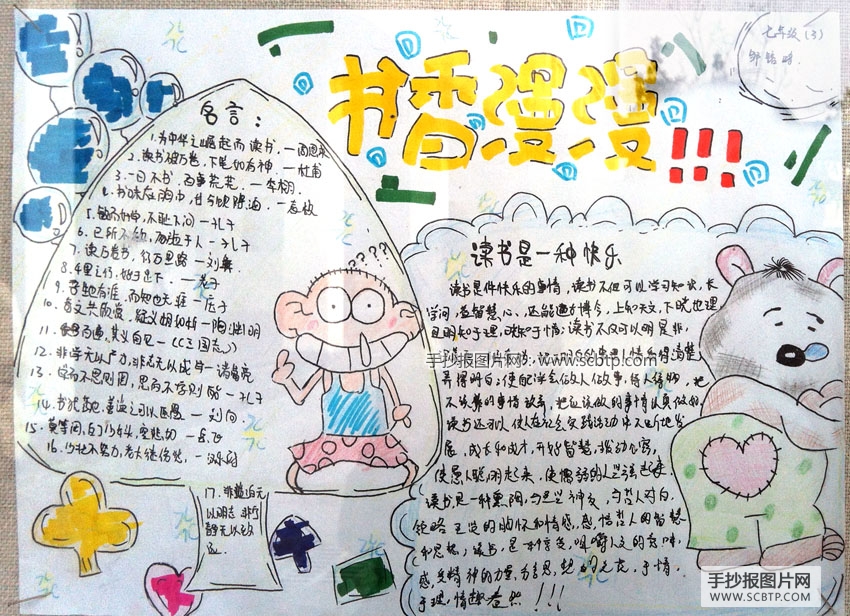 书香漫漫!!!
七年级(3)
名言:
1.为中华之崛起而读书.—周恩来
2.读书破万卷,下笔如有神.—杜甫
3.一日不书,百事荒芜.—李栩.
4.书味在胸中,甘于饮陈酒.—袁枚
5.敏而好学,不耻下问—孔子
6.己所不欲,勿施于人—孔子
7.读万卷书,行万里路—刘彝
8.千里之行,始于足下.—老子
9.吾生也有涯,而知也无涯—庄子
10.奇文共欣赏,疑义相与析—陶渊明
11.读书百遍,其义自见—《三国志》
12.非学无以广才,非志无以成学—诸葛亮
13.学而不思则罔,思而不学则殆—孔子
14.书犹药也,善读之可以医愚—刘向
15.莫等闲,白了少年头,空悲切—岳飞
16.少壮不努力,老大徒伤悲.—汉乐府
17.非淡泊无
以明志,非宁
静无以致
远.
????
读书是一种快乐
读书是件快乐的事情,读书不但可以学习知识,长
学问,益智慧心,还能通古博今,上知天文,下晓地理
且明知于理,晓知于情;读书不仅可以明是非,
弄得明白;使你学会做人做事,待人
不该做的事情放弃,把应该做的事情认真做好.
读书还可以使人在社会实践活动中不断地发
展,成长和成才,开始智慧,拨动心窍,
使愚人聪明起来,使懦弱的人坚强起来.
读书是一种熏陶,与圣贤神交,与哲人对白.
领略先进的胸怀和情感,感悟哲人的智慧
和思想;读书,是一种享受,咀嚼人文的意味,
感受精神的力量,
于理,情趣盎然!!!
手抄报图片网:www.scbtp.com
手抄报图片网
WWW.SCBTP.COM